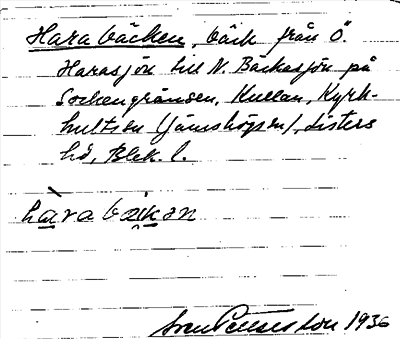 Harabäcken, bäck från Ö.
Harasjön till N. Bäckasjön på
Sockengränsen, Kullan, Kyrk-
hultssn (Jämshögsn), Listers
hd, Blek. l.
hàrabäkən
Sven Petersson 1936